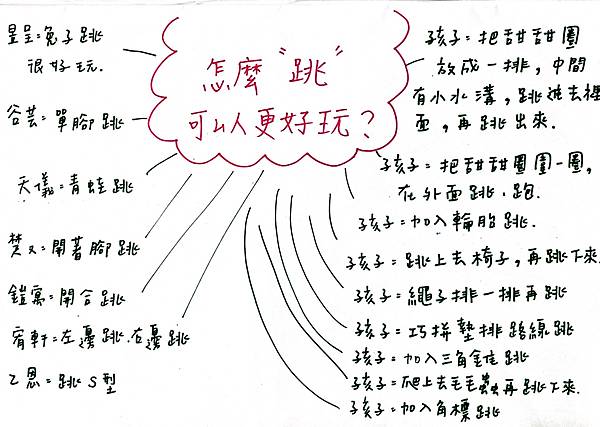 怎麼"跳"
可以更好玩?
昱呈=兔子跳
很好玩.
谷芸=單腳跳
天儀=青蛙跳
焚又=開著腳跳
鎧寓=開合跳
宥軒=左邊跳.右邊跳
乙恩=跳S型
孩子=把甜甜圈
放成一排,中間
有小水溝,跳進去裡
面,再跳出來.
孩子=把甜甜圈圍一圈,
在外面跳、跑.
孩子=加入輪胎跳.
孩子=跳上去椅子,再跳下來
孩子=繩子排一排再跳
孩子=巧拼墊排路線跳
孩子=加入三角錐跳
孩子=爬上去毛毛蟲再跳下來.
孩子=加入角標跳